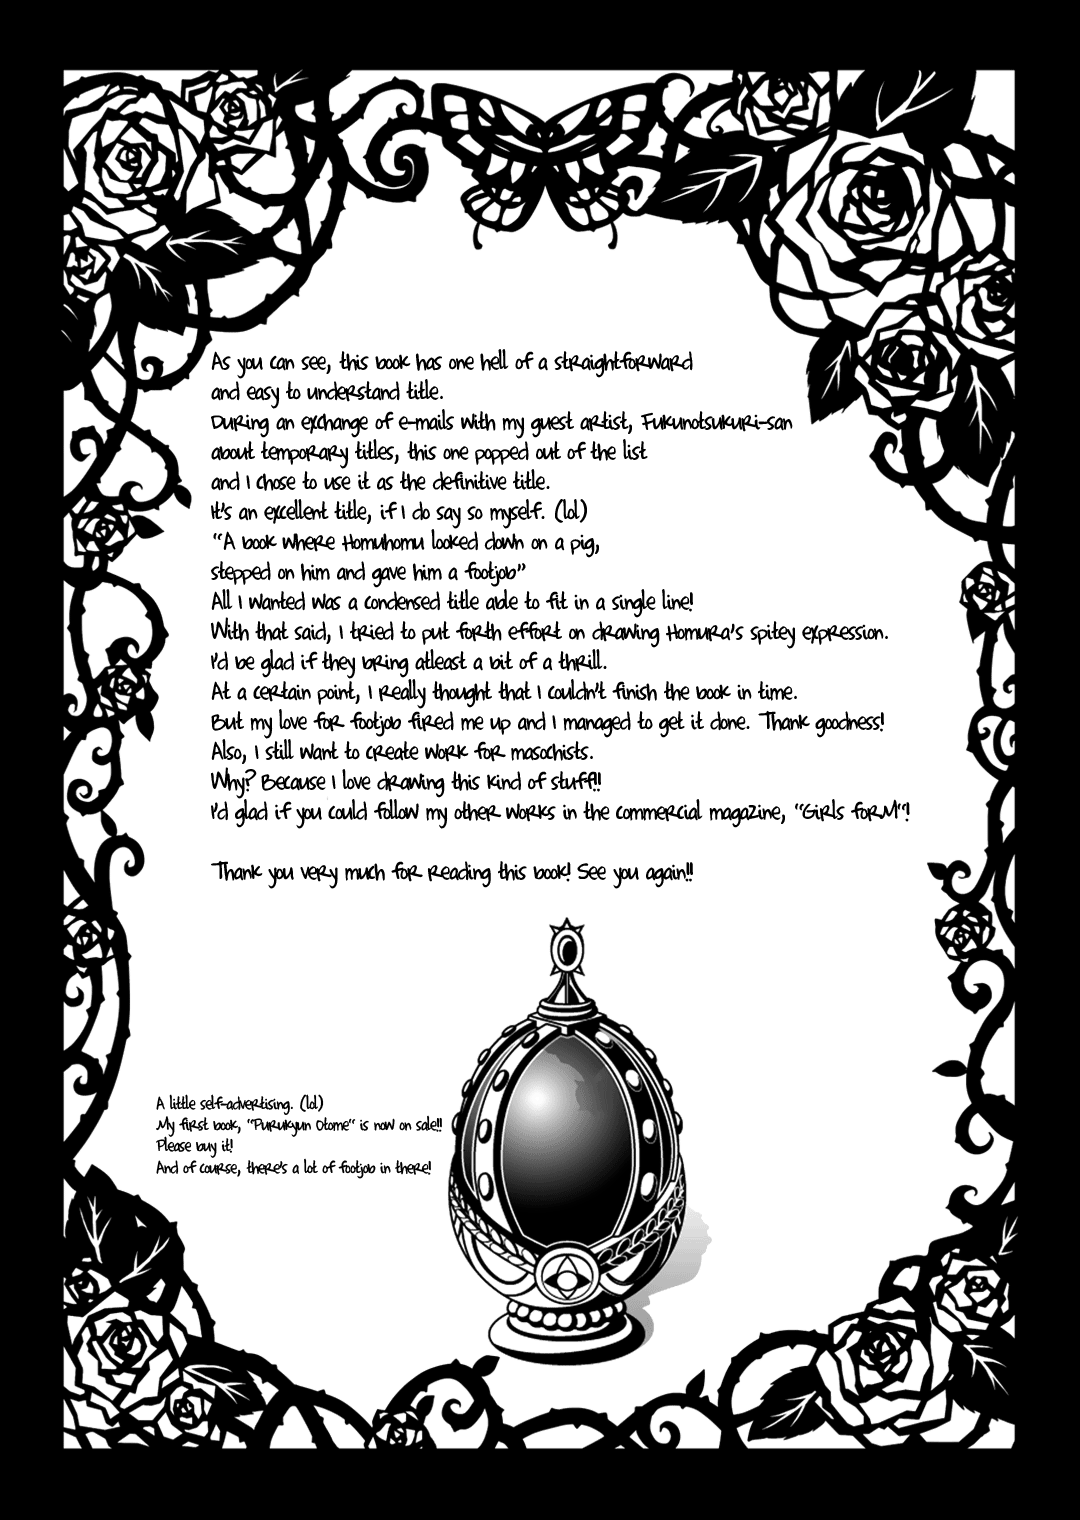 As you can see, this book has one hell of a straightforward
and easy to understand title.
During an exchange of e-mails with my guest artist, Fukunotsukuri-san
about temporary titles, this one popped out of the list
and I chose to use it as the definitive title.
It's an excellent title, if I do say so myself. (lol)
"A book where Homuhomu looked down on a pig,
stepped on him and gave him a footjob"
All I wanted was a condensed title able to fit in a single line!
With that said, I tried to put forth effort on drawing Homura's spitey expression.
I'd be glad if they bring atleast a bit of a thrill.
At a certain point, I really thought that I couldn't finish the book in time.
But my love for footjob fired me up and I managed to get it done. Thank goodness!
Also, I still want to create work for masochists.
Why? Because I love drawing this kind of stuff!!
I'd glad if you could follow my other works in the commercial magazine, "Girls forM"!
Thank you very much for reading this book! See you again!!
A little self-advertising. (lol)
My first book, "Purukyun Otome" is now on sale!!
Please buy it!
And of course, there's a lot of footjob in there!